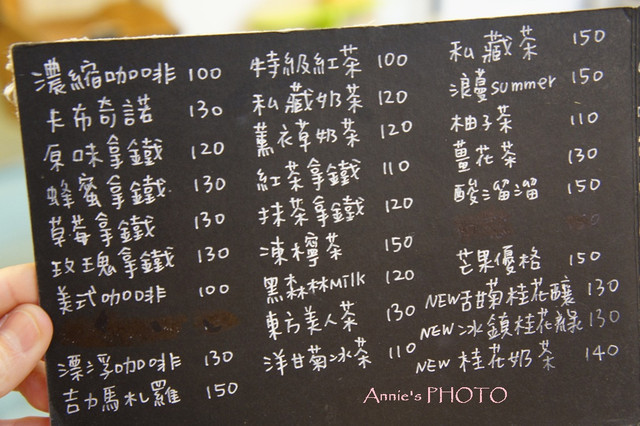 濃縮咖啡 100
卡布奇諾 130
原味拿鐵 120
蜂蜜拿鐵 130
草莓拿鐵 130
玫瑰拿鐵 130
美式咖啡 100
漂浮咖啡 130
吉力馬札羅 150
特級紅茶 100
私藏奶茶 120
薰衣草奶茶 120
紅茶拿鐵 110
抹茶拿鐵 120
凍檸茶 150
黑森林milk 120
東方美人茶 130
洋甘菊冰茶 110
私藏茶 150
浪蔓summer 150
柚子茶 110
薑花茶 130
酸溜溜 150
芒果優格 150
NEW甘菊桂花釀 130
NEW冰鎮桂花綠 130
NEW 桂花奶茶 140
Annie's PHOTO